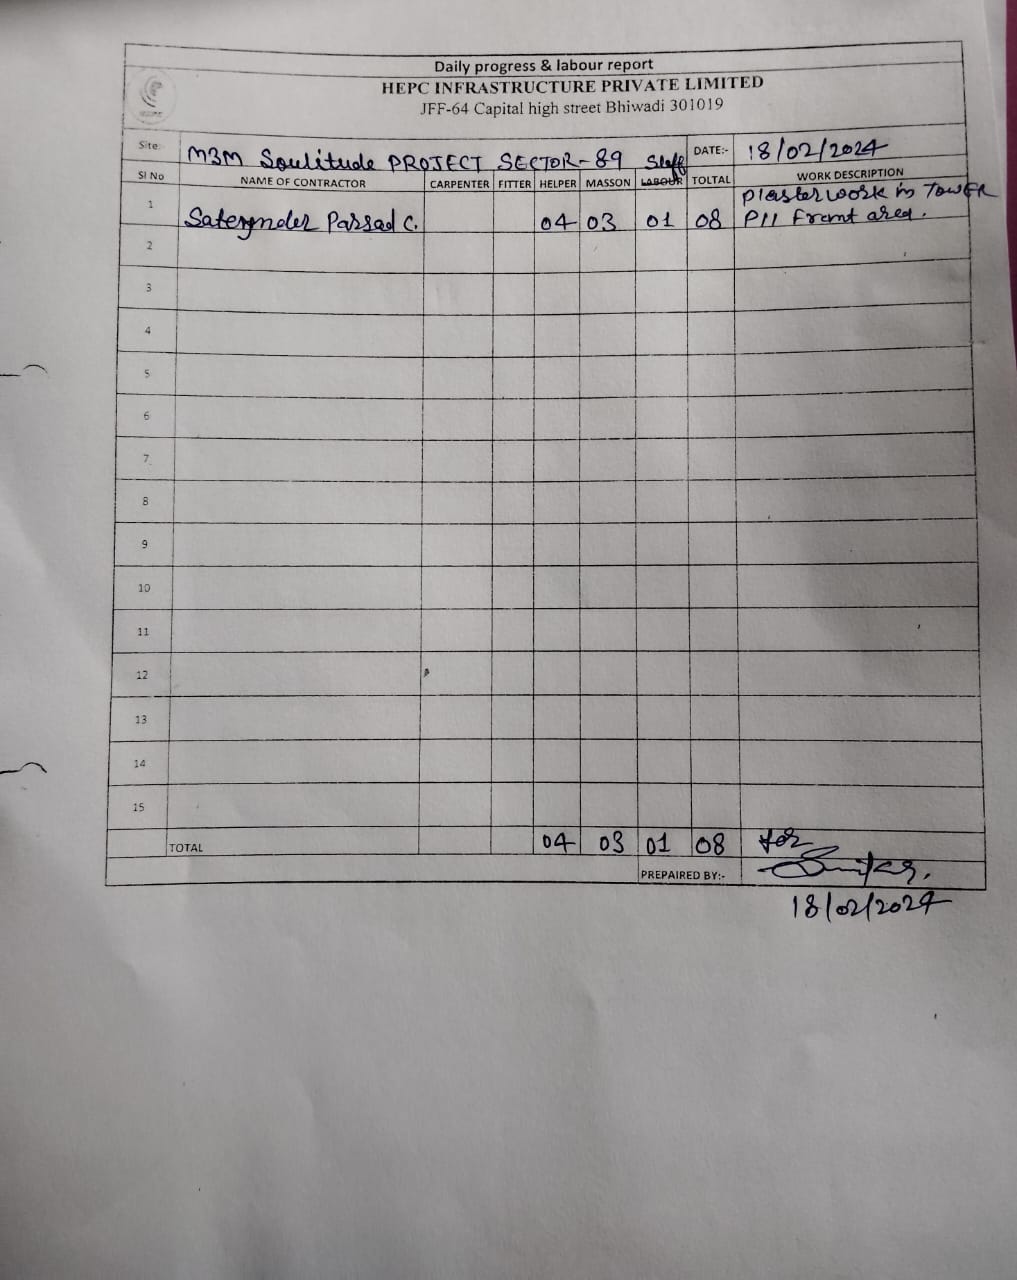 Daily progress & labour report
HEPC INFRASTRUCTURE PRIVATE LIMITED
JFF-64 Capital high street Bhiwadi 301019
Site: M3M Soulitude PROJECT SECTOR-89 DATE:- 18/02/2024
Staff
Sl No NAME OF CONTRACTOR CARPENTER FITTER HELPER MASSON LABOUR TOLTAL WORK DESCRIPTION
1 Saterynder Parsad C. 04 03 01 08 plaster work in TOWER
P11 Fromt area.
2
3
4
5
6
7
8
9
10
11
12
13
14
15
TOTAL 04 03 01 08 for
PREPAIRED BY:-
18/02/2024